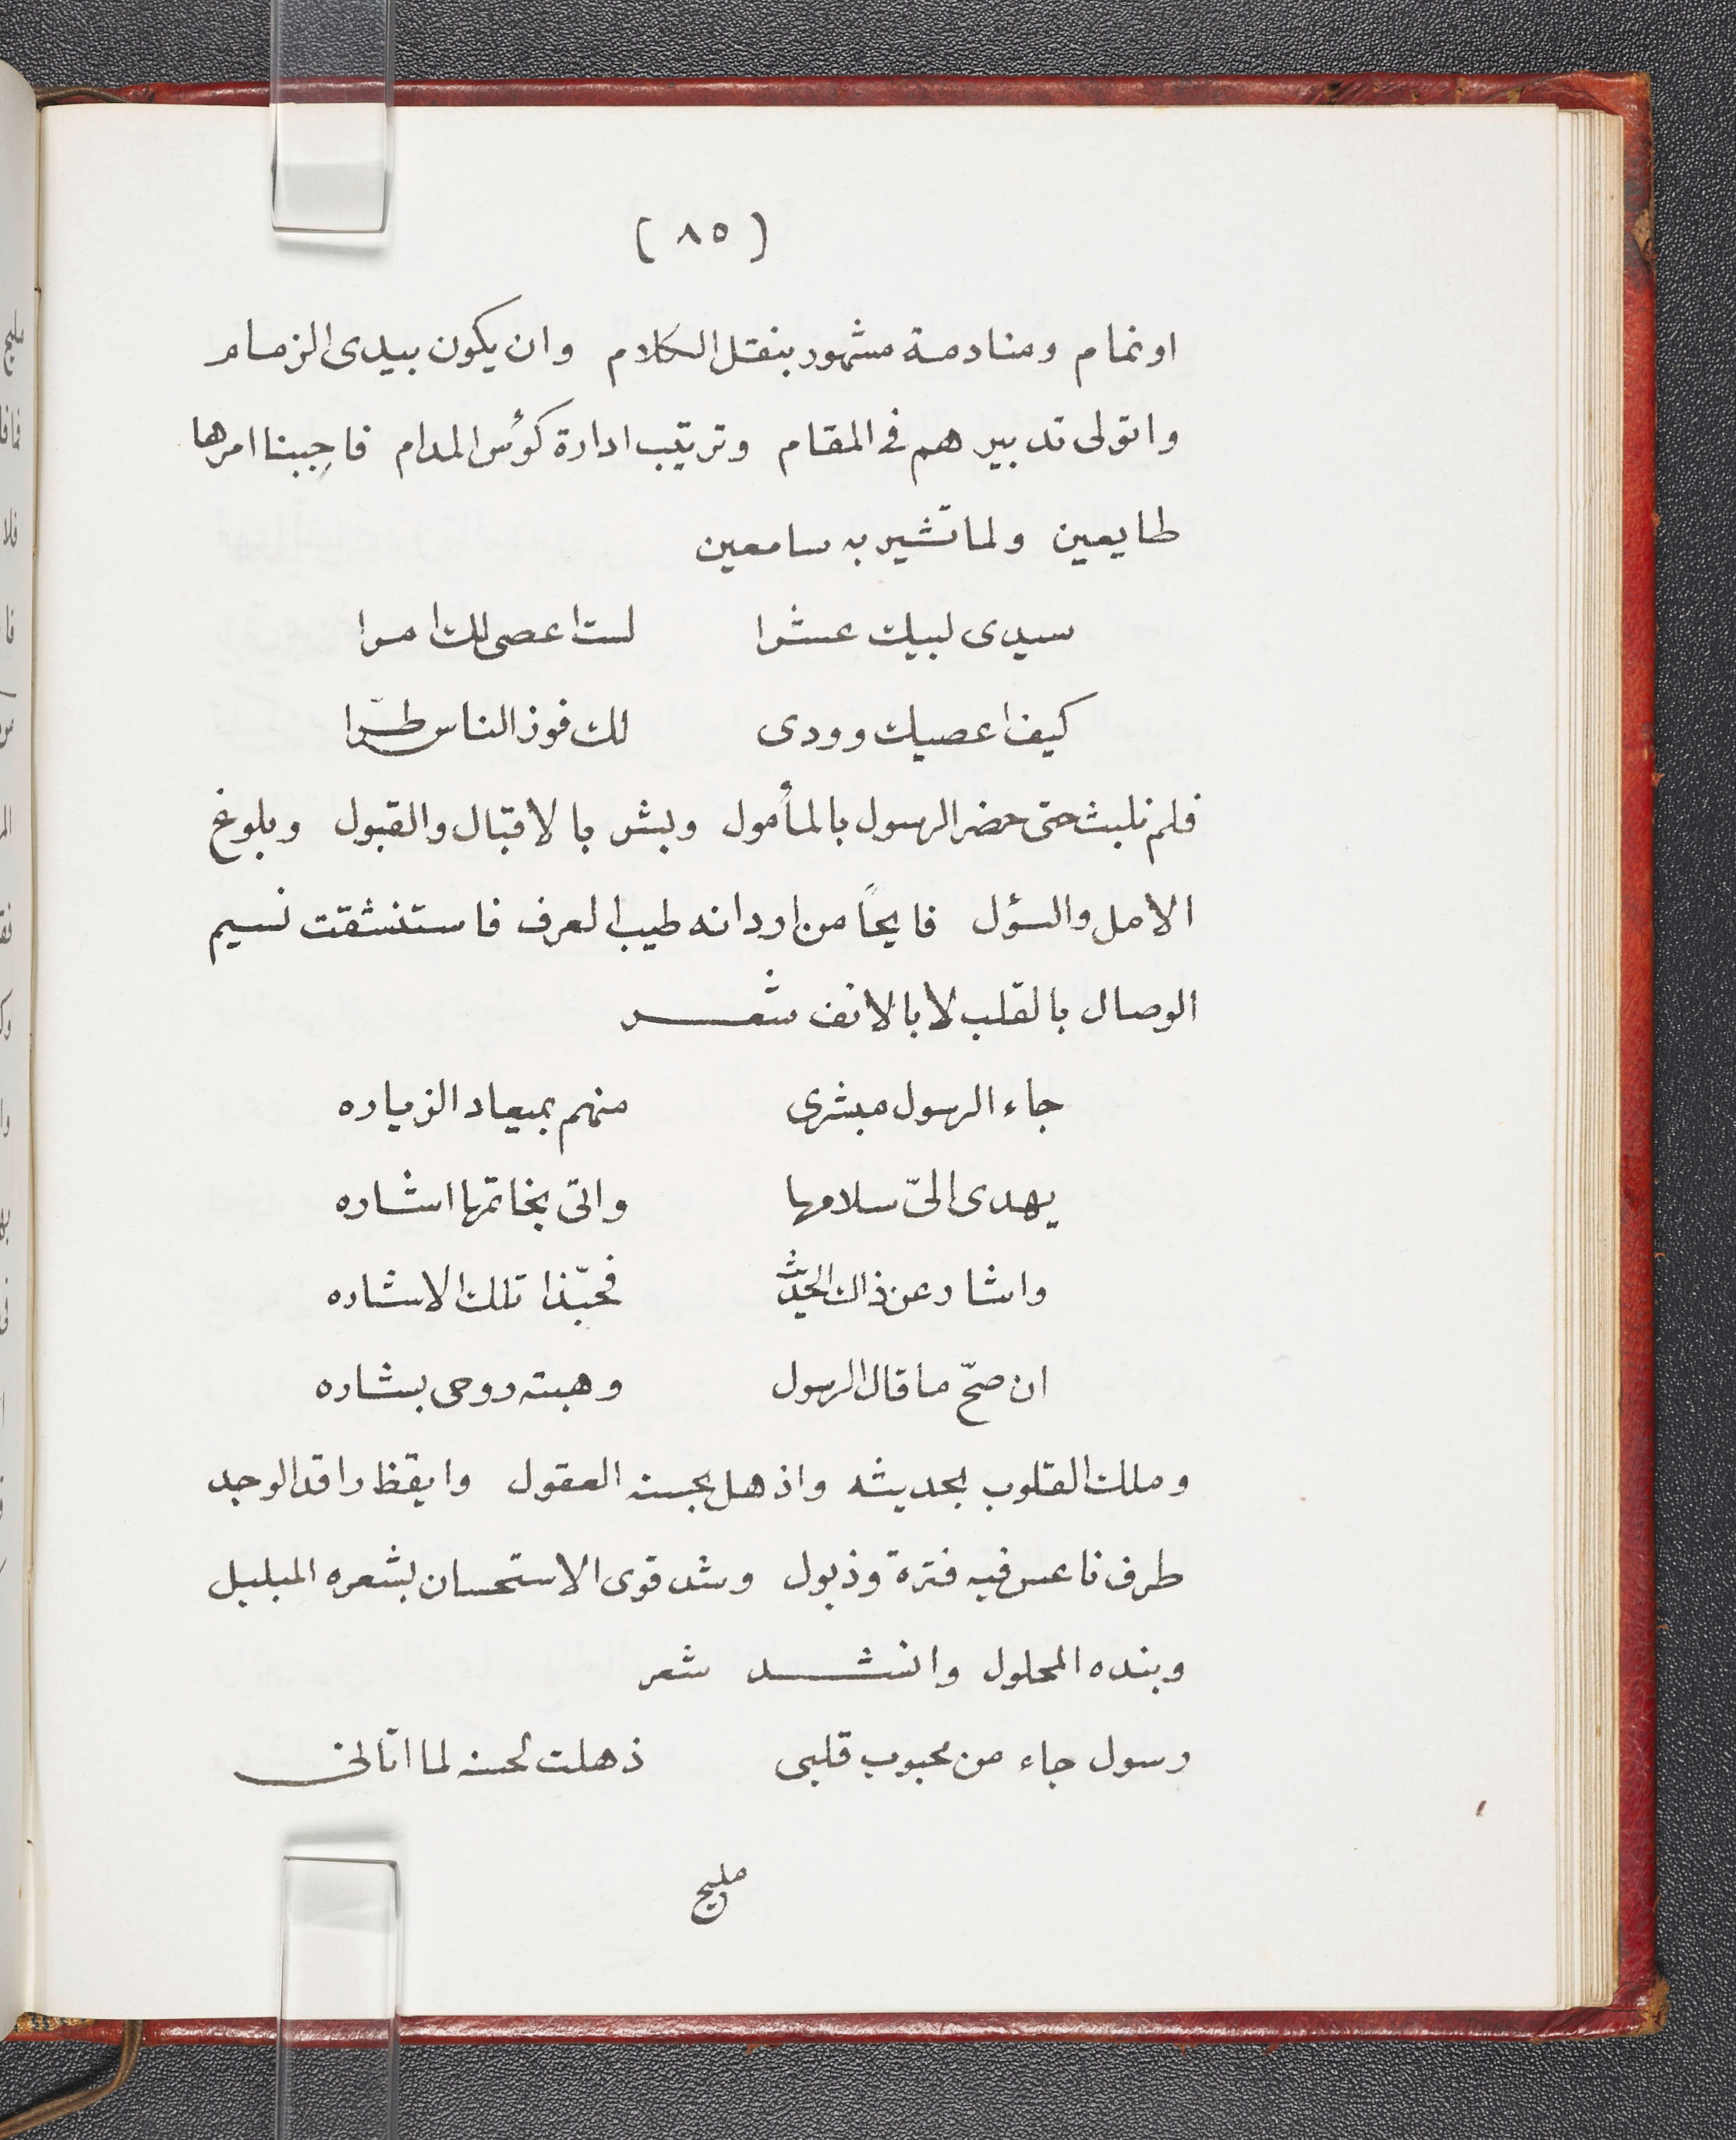 (٨٥)
او نمام ومنادمة مشهور بنقل الكلام وان يكون بيدى الزمام
واتولى تدبيرهم فى المقام وترتيب ادارة كؤس المدام فاجبنا امرها
طايعين ولما تشير به سامعين
سيدى لبيك عشرا لست اعصى لك امرا
كيف اعصيك وودى لك فوز الناس طرّا
فلم نلبث حتى حضر الرسول بالمأمول وبشر بالاقبال والقبول وبلوغ
الامل والسؤل فايحاً من اردانه طيب العرف فاستنشقت نسيم
الوصال بالقلب لا بالانف شعر
جاء الرسول مبشرى منهم بميعاد الزياره
يهدى الىّ سلامها واتى بخاتمها اشاره
واشار عن ذاك الحديث فحبّذا تلك الاشاره
ان صحّ ما قال الرسول وهبته روحى بشاره
وملك القلوب بحديثه واذهل بحسنه العقول وايقظ راقد الوجد
طرف ناعس فيه فترة وذبول وشد قوى الاستحسان بشعره المبلبل
وبنده المحلول وانشد شعر
رسول جاء من محبوب قلبى ذهلت لحسنه لما اتالى
مليح